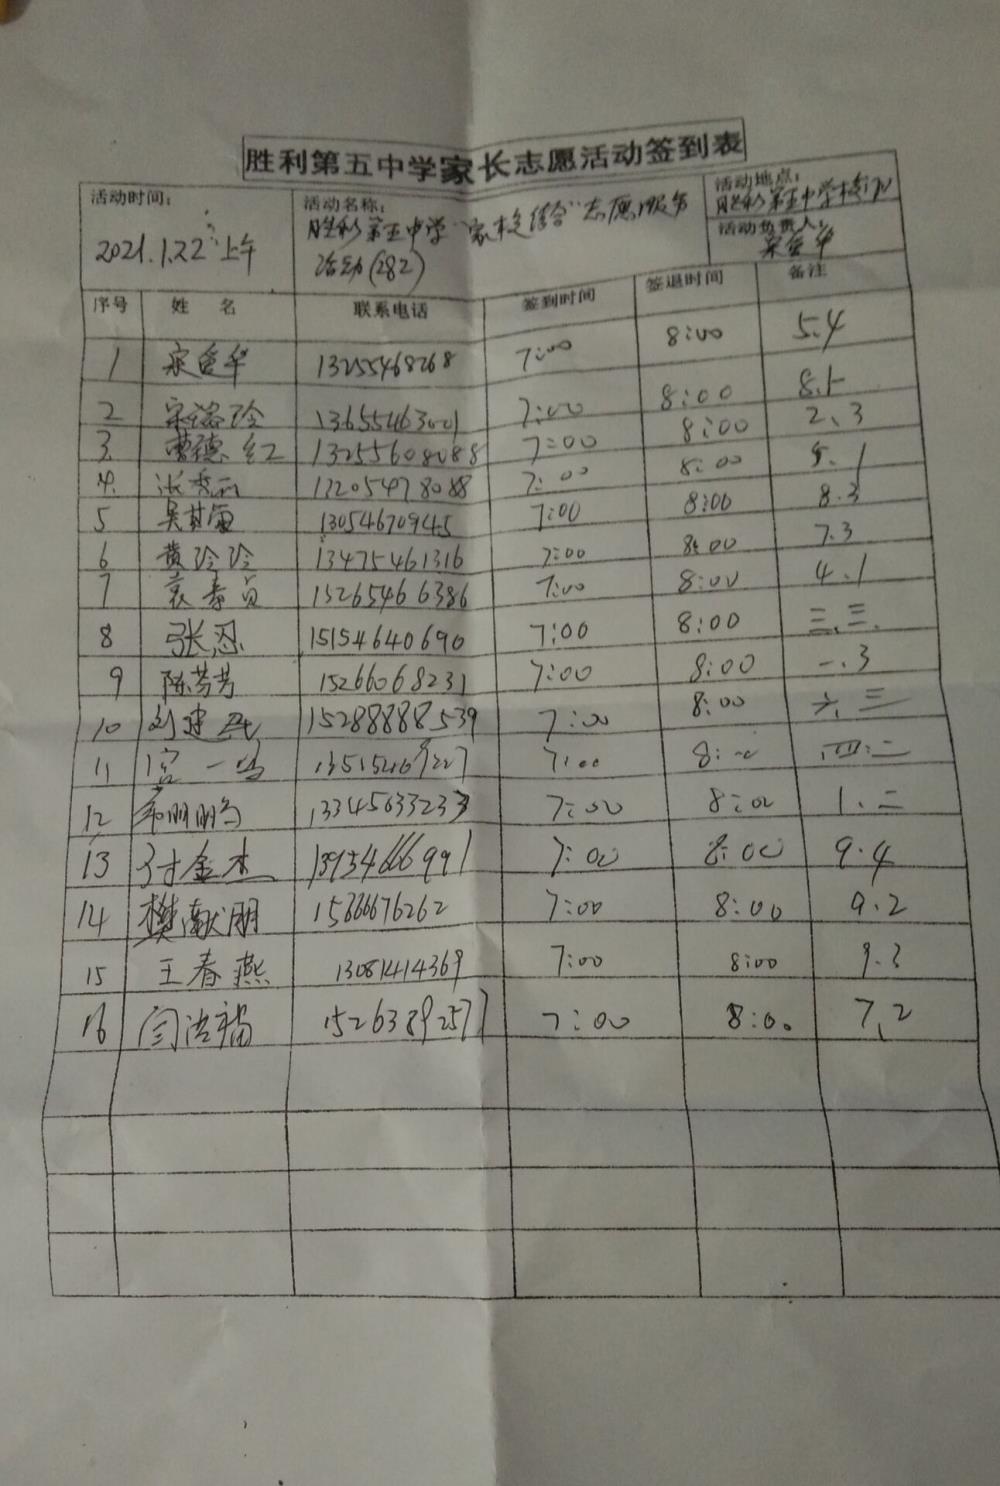 胜利第五中学家长志愿活动签到表
活动时间: 2021.1.22 上午
活动名称: 胜利第五中学"家校结合"志愿服务
活动(282)
活动地点: 胜利第五中学校门口
活动负责人:
序号 姓 名 联系电话 签到时间 签退时间 备注
1 13255468268 7:00 8:00 5.4
2 13655463001 7:00 8:00 8.5
3. 曹德红 13255608088 7:00 8:00 2.3
4. 13205478088 7:00 8:00 5.1
5 吴其勇 13054670945 7:00 8:00 8.3
6 黄玲玲 13475461316 7:00 8:00 7.3
7 袁春贞 15265466386 7:00 8:00 4.1
8 张恩 15154640690 7:00 8:00 三.三.
9 陈芳芳 15266068231 7:00 8:00 一.3
10 刘建民 15288888539 7:00 8:00 六.三
11 宫一鸣 7:00 8:00 四.二
12 13345633233 7:00 8:00 1.二
13 付金杰 13954666991 7:00 8:00 9.4
14 樊献朋 15666676262 7:00 8:00 9.2
15 王春燕 13081414369 7:00 8:00 9.3
16 闫洪福 15263892577 7:00 8:00 7.2